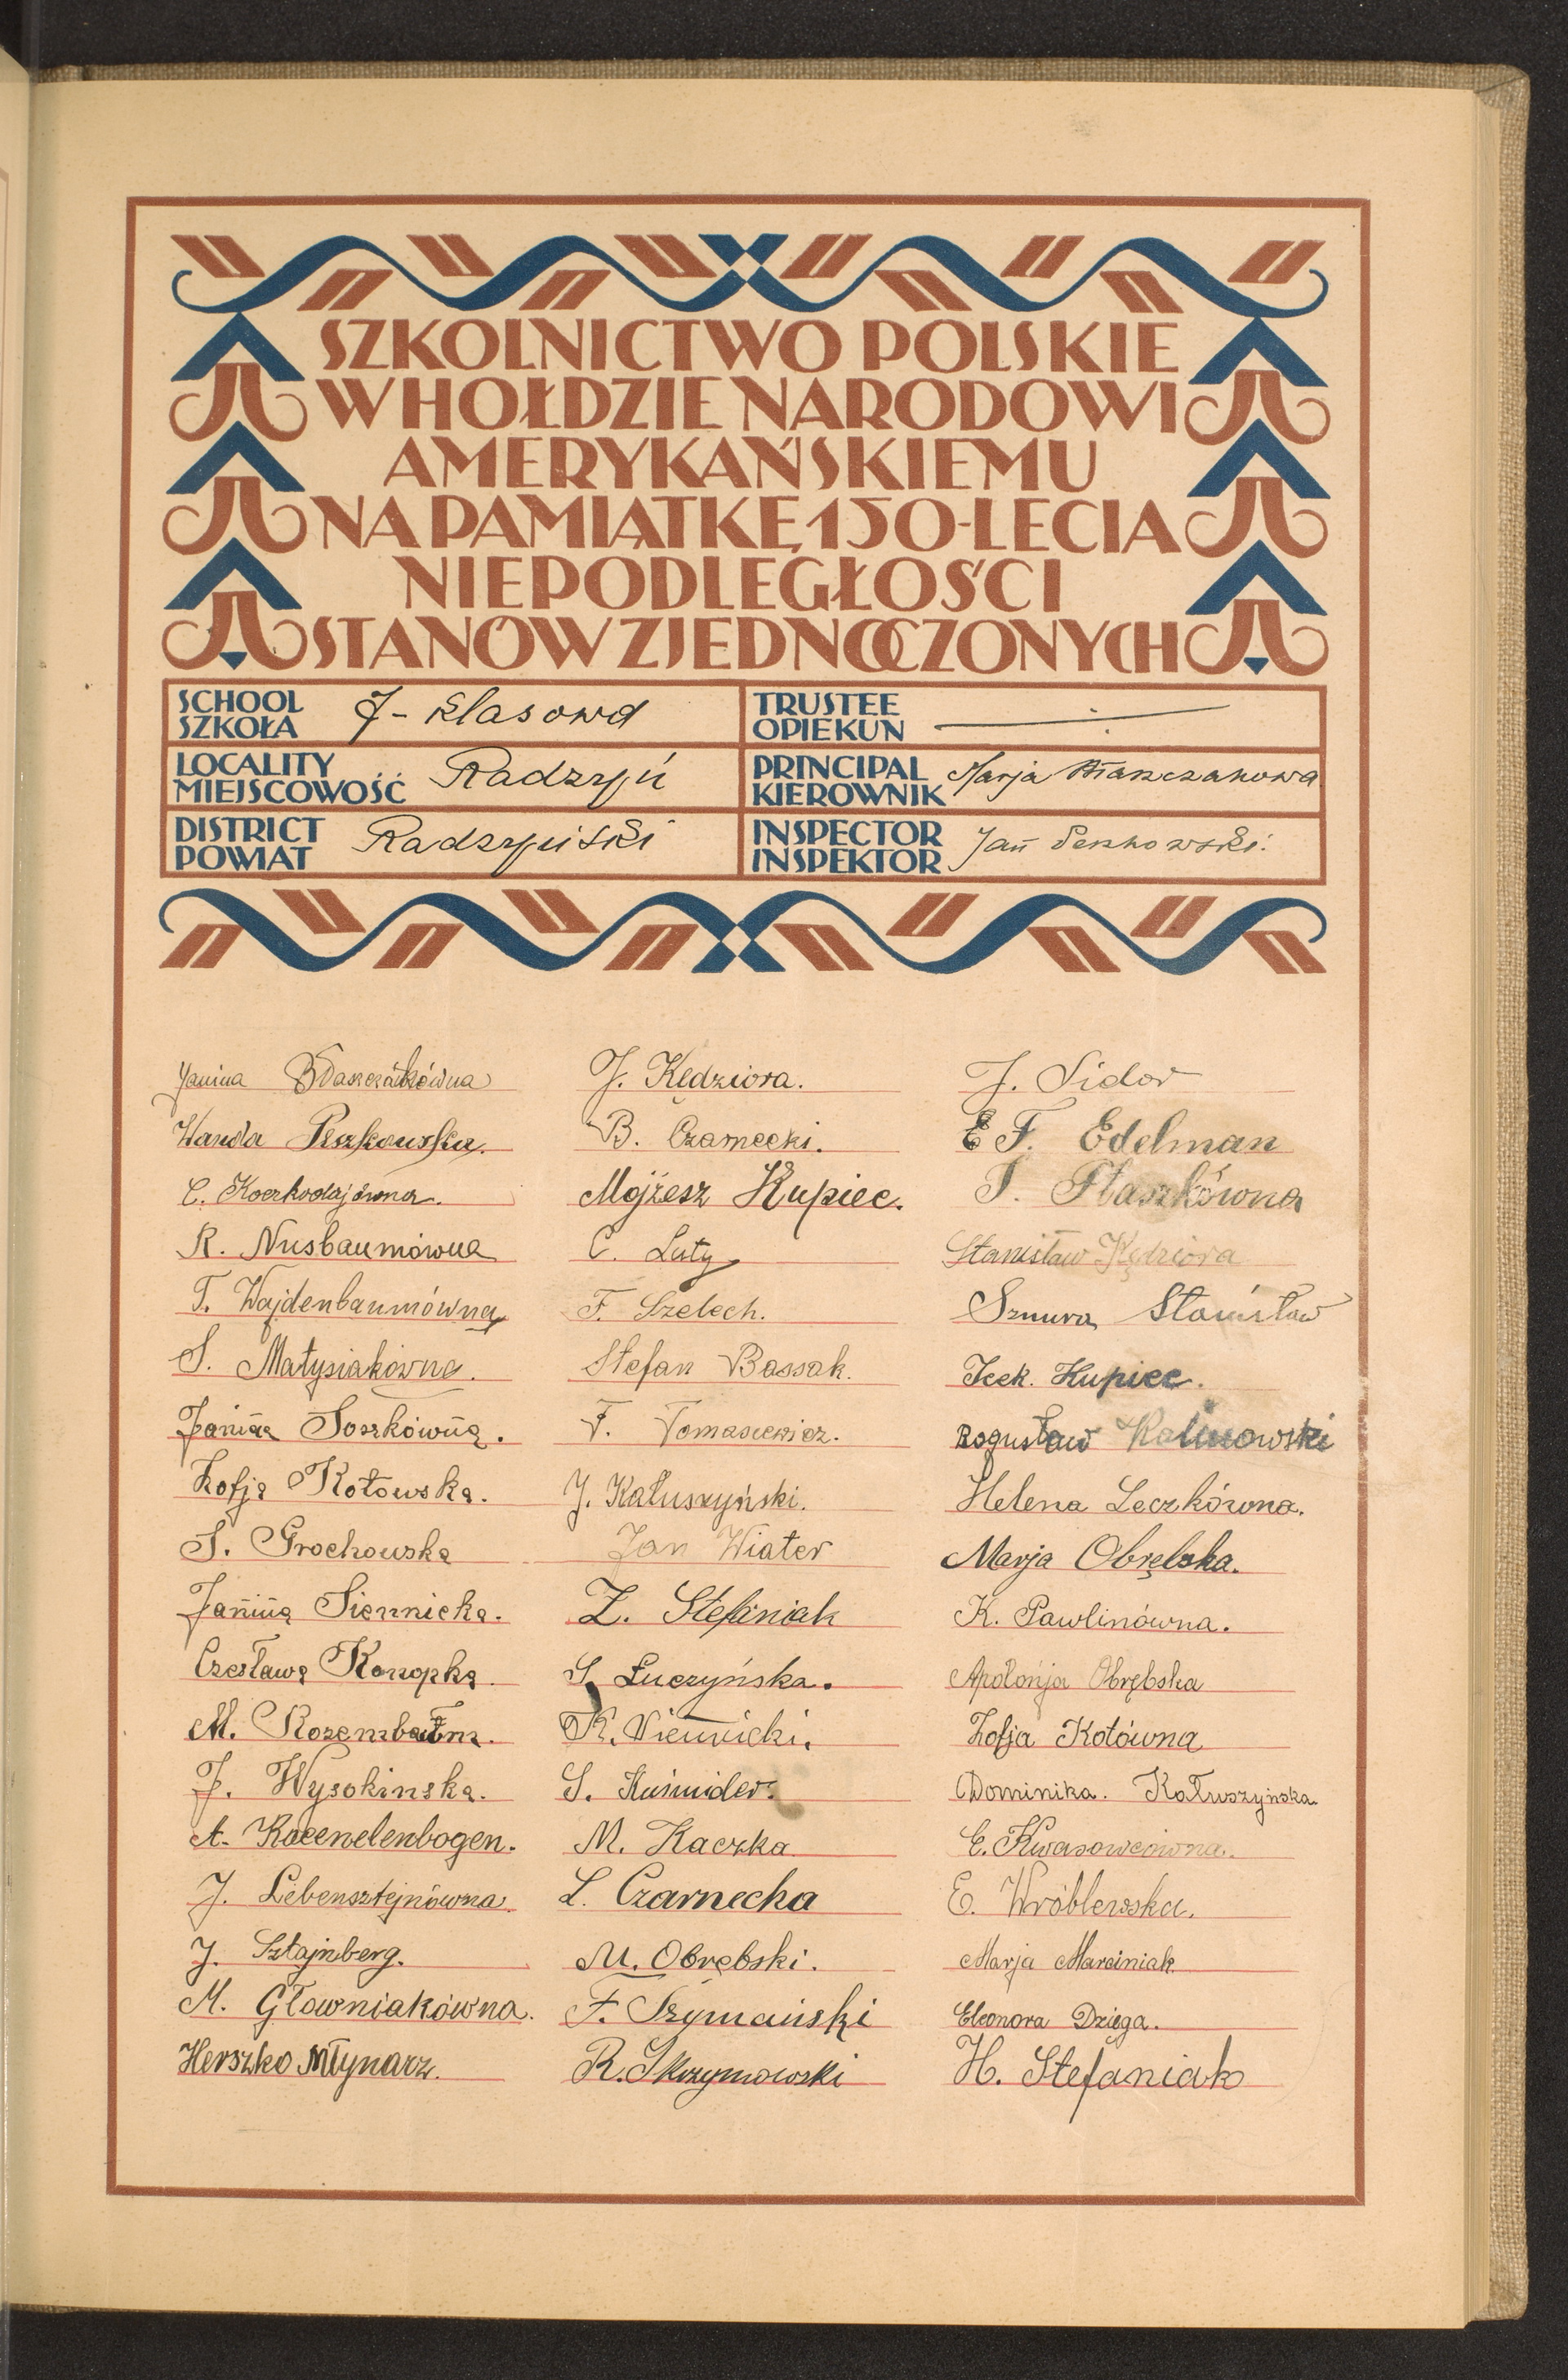 SZKOLNICTWO POLSKIE
W HOŁDZIE NARODOWI
AMERYKAŃSKIEMU
NA PAMIĄTKĘ 150-LECIA
NIEPODLEGŁOŚCI
STANÓW ZJEDNOCZONYCH
SCHOOL
SZKOŁA 7-klasowa
TRUSTEE
OPIEKUN
LOCALITY
MIEJSCOWOŚĆ Radzyń
PRINCIPAL
KIEROWNIK Marja
DISTRICT
POWIAT Radzyński
INSPECTOR
INSPEKTOR Jan
Janina Błaszczakówna
Wanda Peszkowska.
C. Koczkodajówna.
R. Nusbaumówna
T. Wajdenbaumówna
S. Matysiakówna.
Janina Soszkówna.
Zofja Kotowska.
S. Grochowska
Janina Siennicka.
Czesława Konopka.
M. Rozenbaum.
J. Wysokinska.
A. Kacenelenbogen.
J. Lebensztejnówna.
J. Sztajnberg.
M. Głowniakówna.
Herszko Młynarz.
J. Kędziora.
B. Czarnecki.
Mojżesz Kupiec.
C. Luty
F. Szelech.
Stefan Bassak.
F. Tomasiewicz.
J. Kałuszyński.
Jan Wiater
Z. Stefaniak
S. Łuczyńska.
K. Siennicki.
S. Kuśmider.
M. Kaczka
L. Czarnecka
M. Obrębski.
F. Szymański
R. Skrzymowski
J. Sidor
E F. Edelman
S. Ptaszkówna
Stanisław Kędziora
Sznura Stanisław
Icek. Kupiec.
Bogusław Kalinowski
Helena Leczkówna.
Marja Obrębska.
K. Pawlinówna.
Apolonja Obrębska
Zofja Kotówna
Dominika. Kałuszyńska.
E. Kwasowcówna.
E. Wróblewska.
Marja Marciniak.
Eleonora Dzięga.
H. Stefaniak